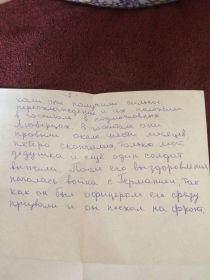 - 2 -
кали они получили сильное
переохлаждение и их положили
в госпиталь в подмосковных
Люберцах. В госпитале они
провели около шести месяцев
пятеро скончались, только мой
дедушка и ещё один солдат
выжили. После его выздоровления
началась война с Германией. Так
как он был офицером его сразу
призвали и он поехал на фронт.